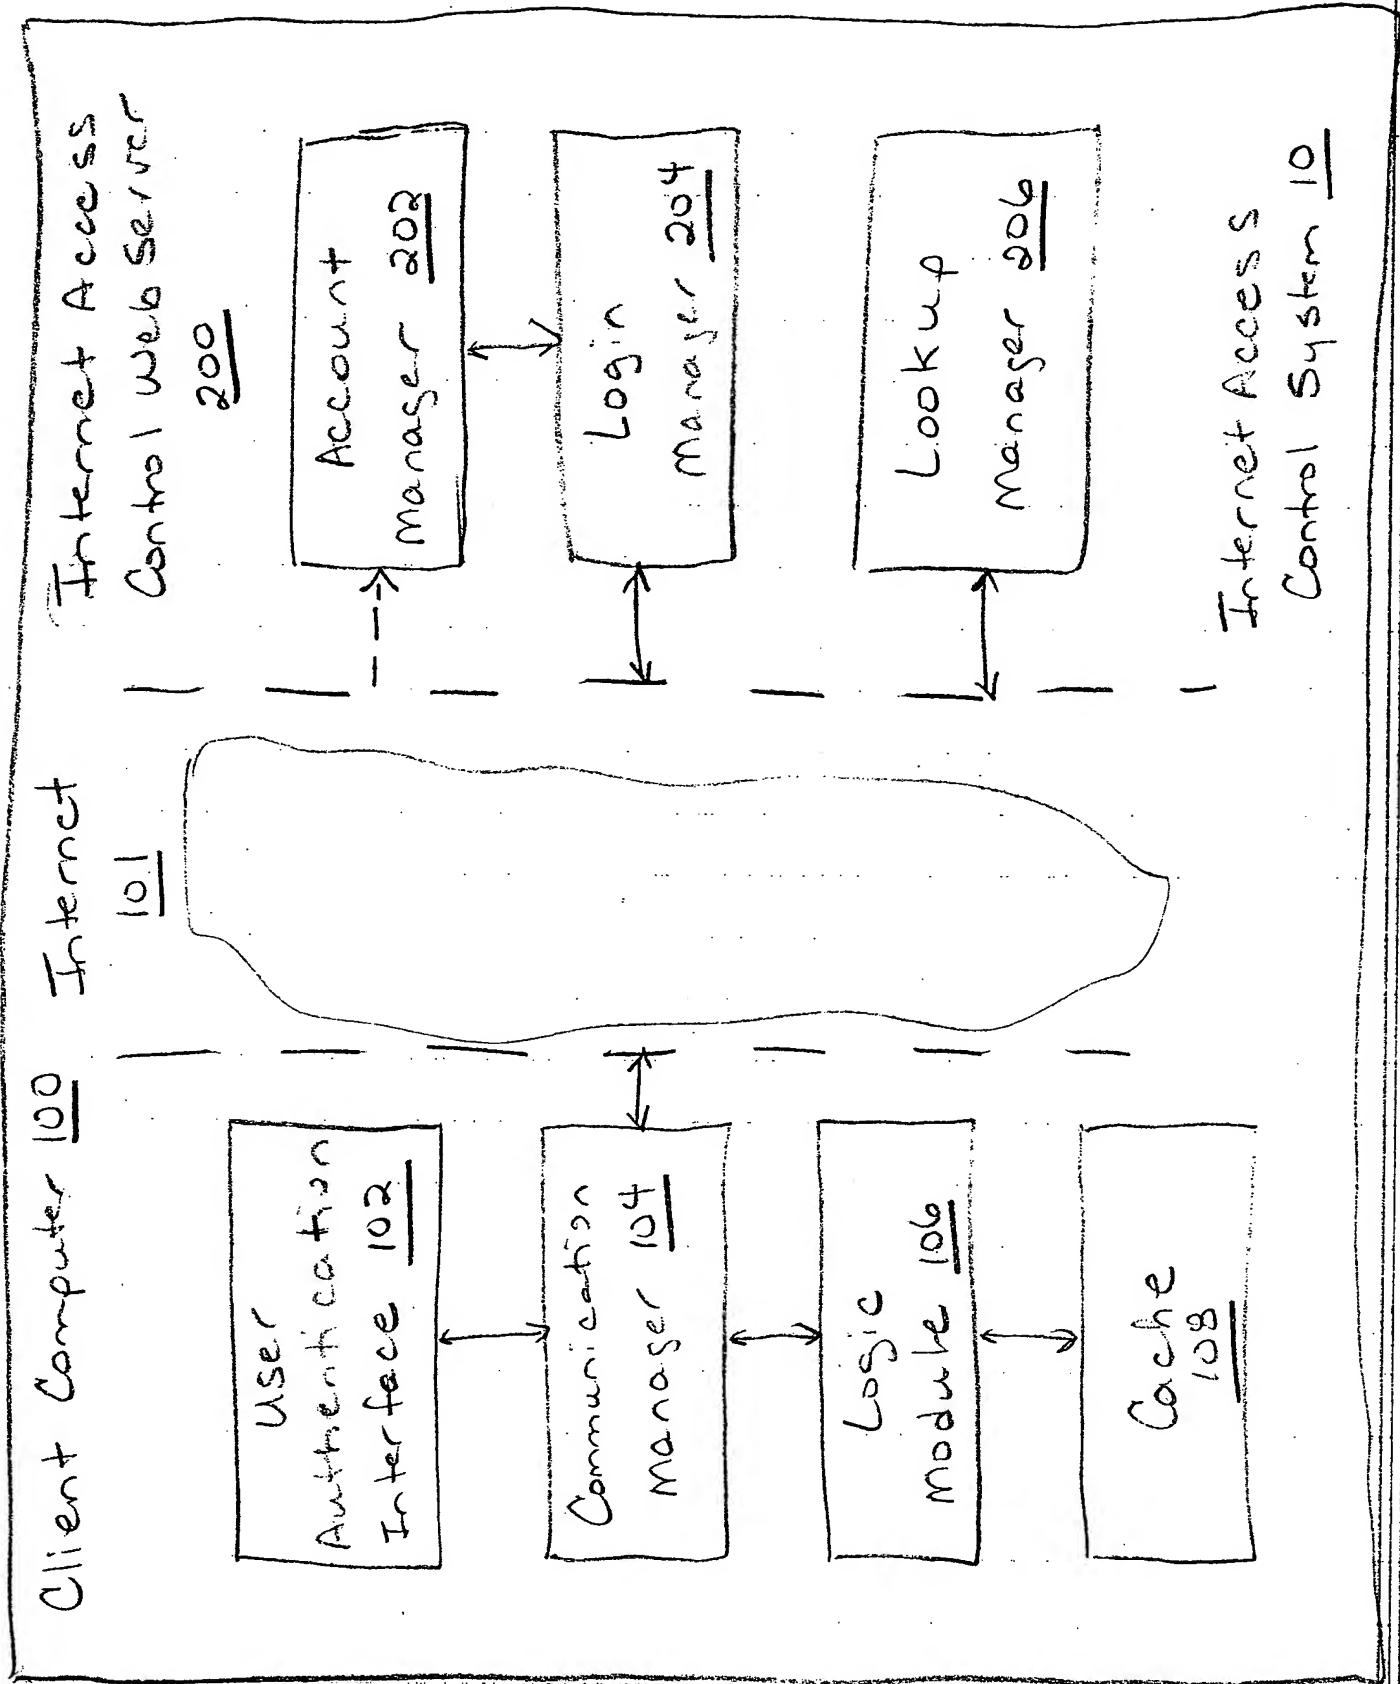 Client Computer 100
User
Authentication
Interface 102
Communication
Manager 104
Logic
Module 106
Cache
108
Internet
101
Internet Access
Control Web Server
200
Account
Manager 202
Login
Manager 204
Lookup
Manager 206
Internet Access
Control System 10